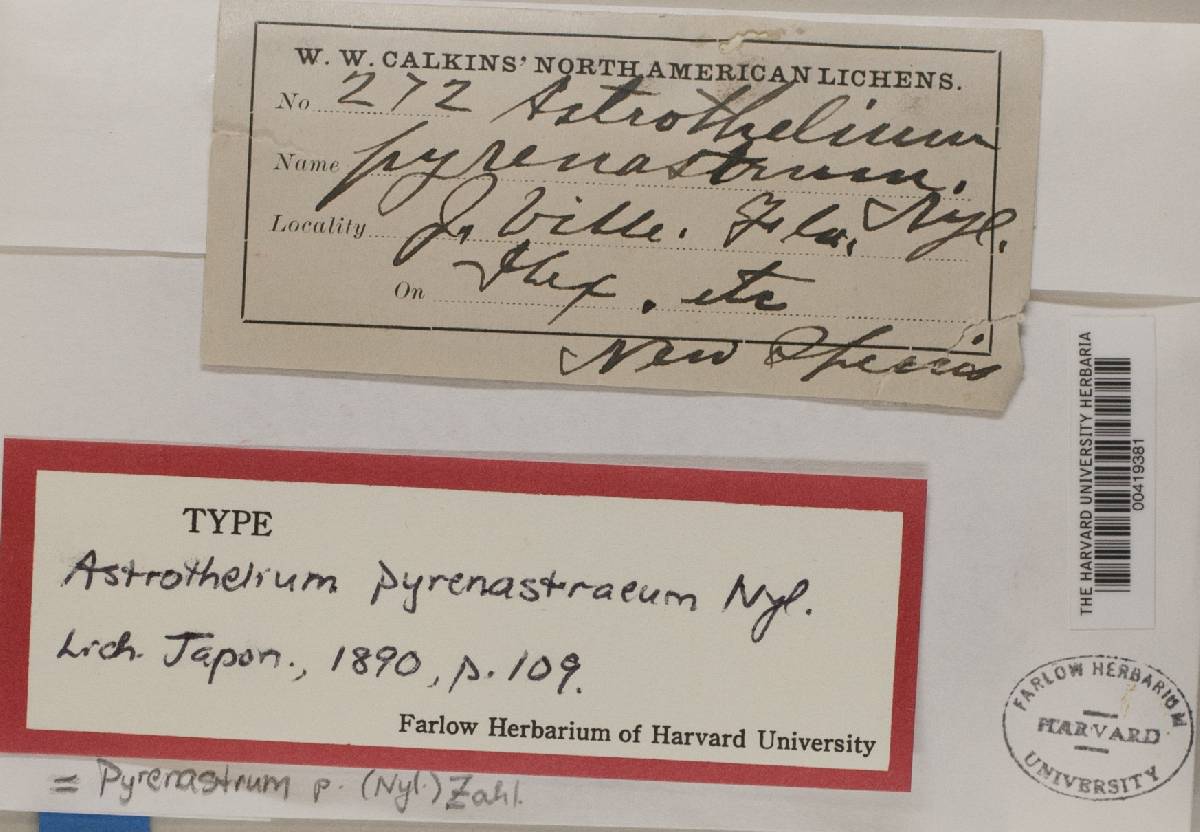 W. W. CALKINS' NORTH AMERICAN LICHENS.
No 272 Astrothelium
Name pyrenastrum. Nyl.
Locality J. Ville. Fla.
On Ilex. etc
New Species
TYPE
Astrothelium pyrenastraeum Nyl.
Lich. Japon., 1890, p. 109.
Farlow Herbarium of Harvard University
= Pyrenastrum p. (Nyl.) Zahl.
THE HARVARD UNIVERSITY HERBARIA
00419381
FARLOW HERBARIUM
HARVARD
UNIVERSITY